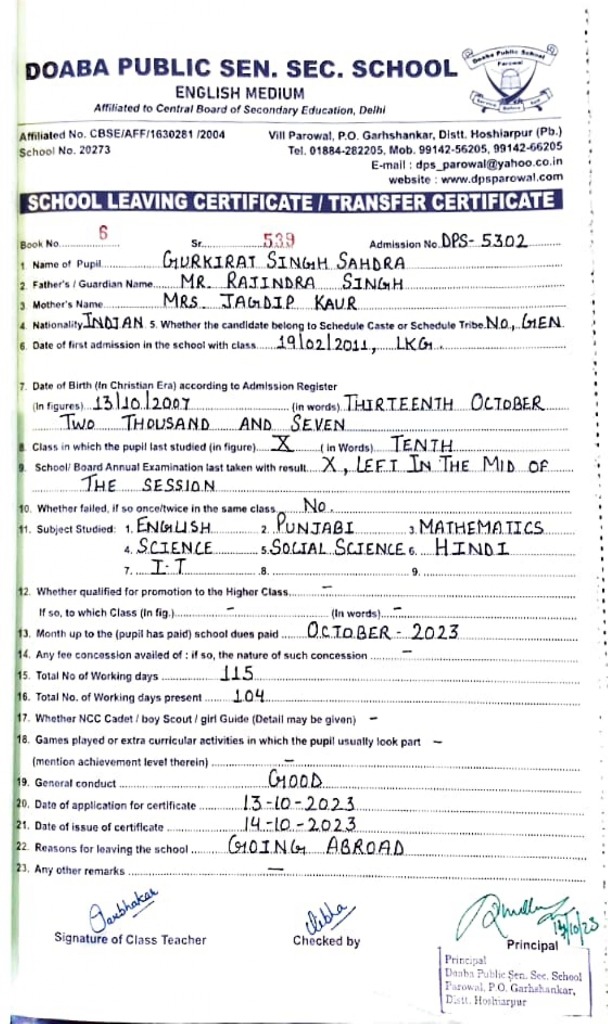 DOABA PUBLIC SEN. SEC. SCHOOL
Doaba Public School
Parowal
ENGLISH MEDIUM
Affiliated to Central Board of Secondary Education, Delhi
Affiliated No. CBSE/AFF/1630281 /2004
Vill Parowal, P.O. Garhshankar, Distt. Hoshiarpur (Pb.)
School No. 20273
Tel. 01884-282205, Mob. 99142-56205, 99142-66205
E-mail : dps_parowal@yahoo.co.in
website : www.dpsparowal.com
SCHOOL LEAVING CERTIFICATE / TRANSFER CERTIFICATE
Book No. 6 Sr. 539 Admission No. DPS- 5302
1. Name of Pupil GURKIRAT SINGH SAHDRA
2. Father's / Guardian Name MR. RAJINDRA SINGH
3. Mother's Name MRS. JAGDIP KAUR
4. Nationality INDIAN 5. Whether the candidate belong to Schedule Caste or Schedule Tribe. NO, GEN
6. Date of first admission in the school with class 19/02/2011, LKG.
7. Date of Birth (In Christian Era) according to Admission Register
(In figures) 13/10/2007 (in words) THIRTEENTH OCTOBER
TWO THOUSAND AND SEVEN
8. Class in which the pupil last studied (in figure) X (in Words) TENTH
9. School/ Board Annual Examination last taken with result X, LEFT IN THE MID OF
THE SESSION
10. Whether failed, if so once/twice in the same class No.
11. Subject Studied: 1. ENGLISH 2. PUNJABI 3. MATHEMATICS
4. SCIENCE 5. SOCIAL SCIENCE 6. HINDI
7. I.T 8. 9.
12. Whether qualified for promotion to the Higher Class —
If so, to which Class (In fig.) — (In words) —
13. Month up to the (pupil has paid) school dues paid OCTOBER - 2023
14. Any fee concession availed of : if so, the nature of such concession —
15. Total No of Working days 115
16. Total No. of Working days present 104
17. Whether NCC Cadet / boy Scout / girl Guide (Detail may be given) —
18. Games played or extra curricular activities in which the pupil usually look part —
(mention achievement level therein) —
19. General conduct GOOD
20. Date of application for certificate 13-10-2023
21. Date of issue of certificate 14-10-2023
22. Reasons for leaving the school GOING ABROAD
23. Any other remarks —
Signature of Class Teacher Checked by Principal
Principal
Doaba Public Sen. Sec. School
Parowal, P.O. Garhshankar,
Distt. Hoshiarpur